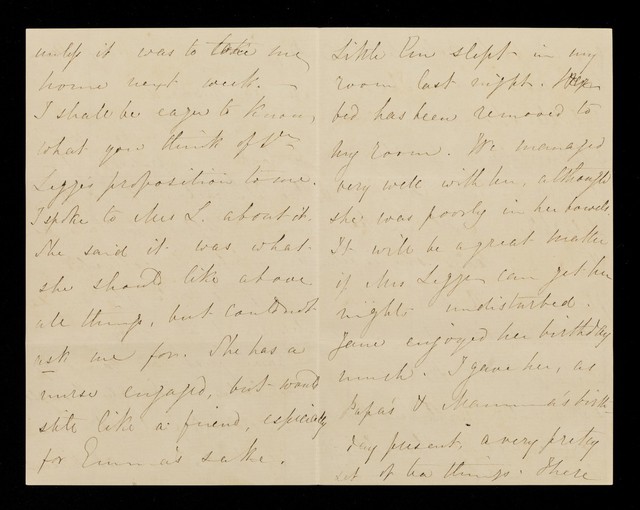 unless it was to take me
home next week.
I shall be eager to know,
what you think of Dr
Legge's proposition to me.
I spoke to Mrs L. about it.
She said it was what
she should like above
all things, but could not
ask me for. She has a
nurse engaged, but would
still like a friend, especially
for Emma's sake.
Little Em slept in my
room last night. Her
bed has been removed to
my room. We managed
very well with her, although
she was poorly in her bowels.
It will be a great matter
if Mrs Legge can get her
nights undisturbed.
Jane enjoyed her birthday
much. I gave her, as
Papa's & Mamma's birth-
day present, a very pretty
set of tea things. There